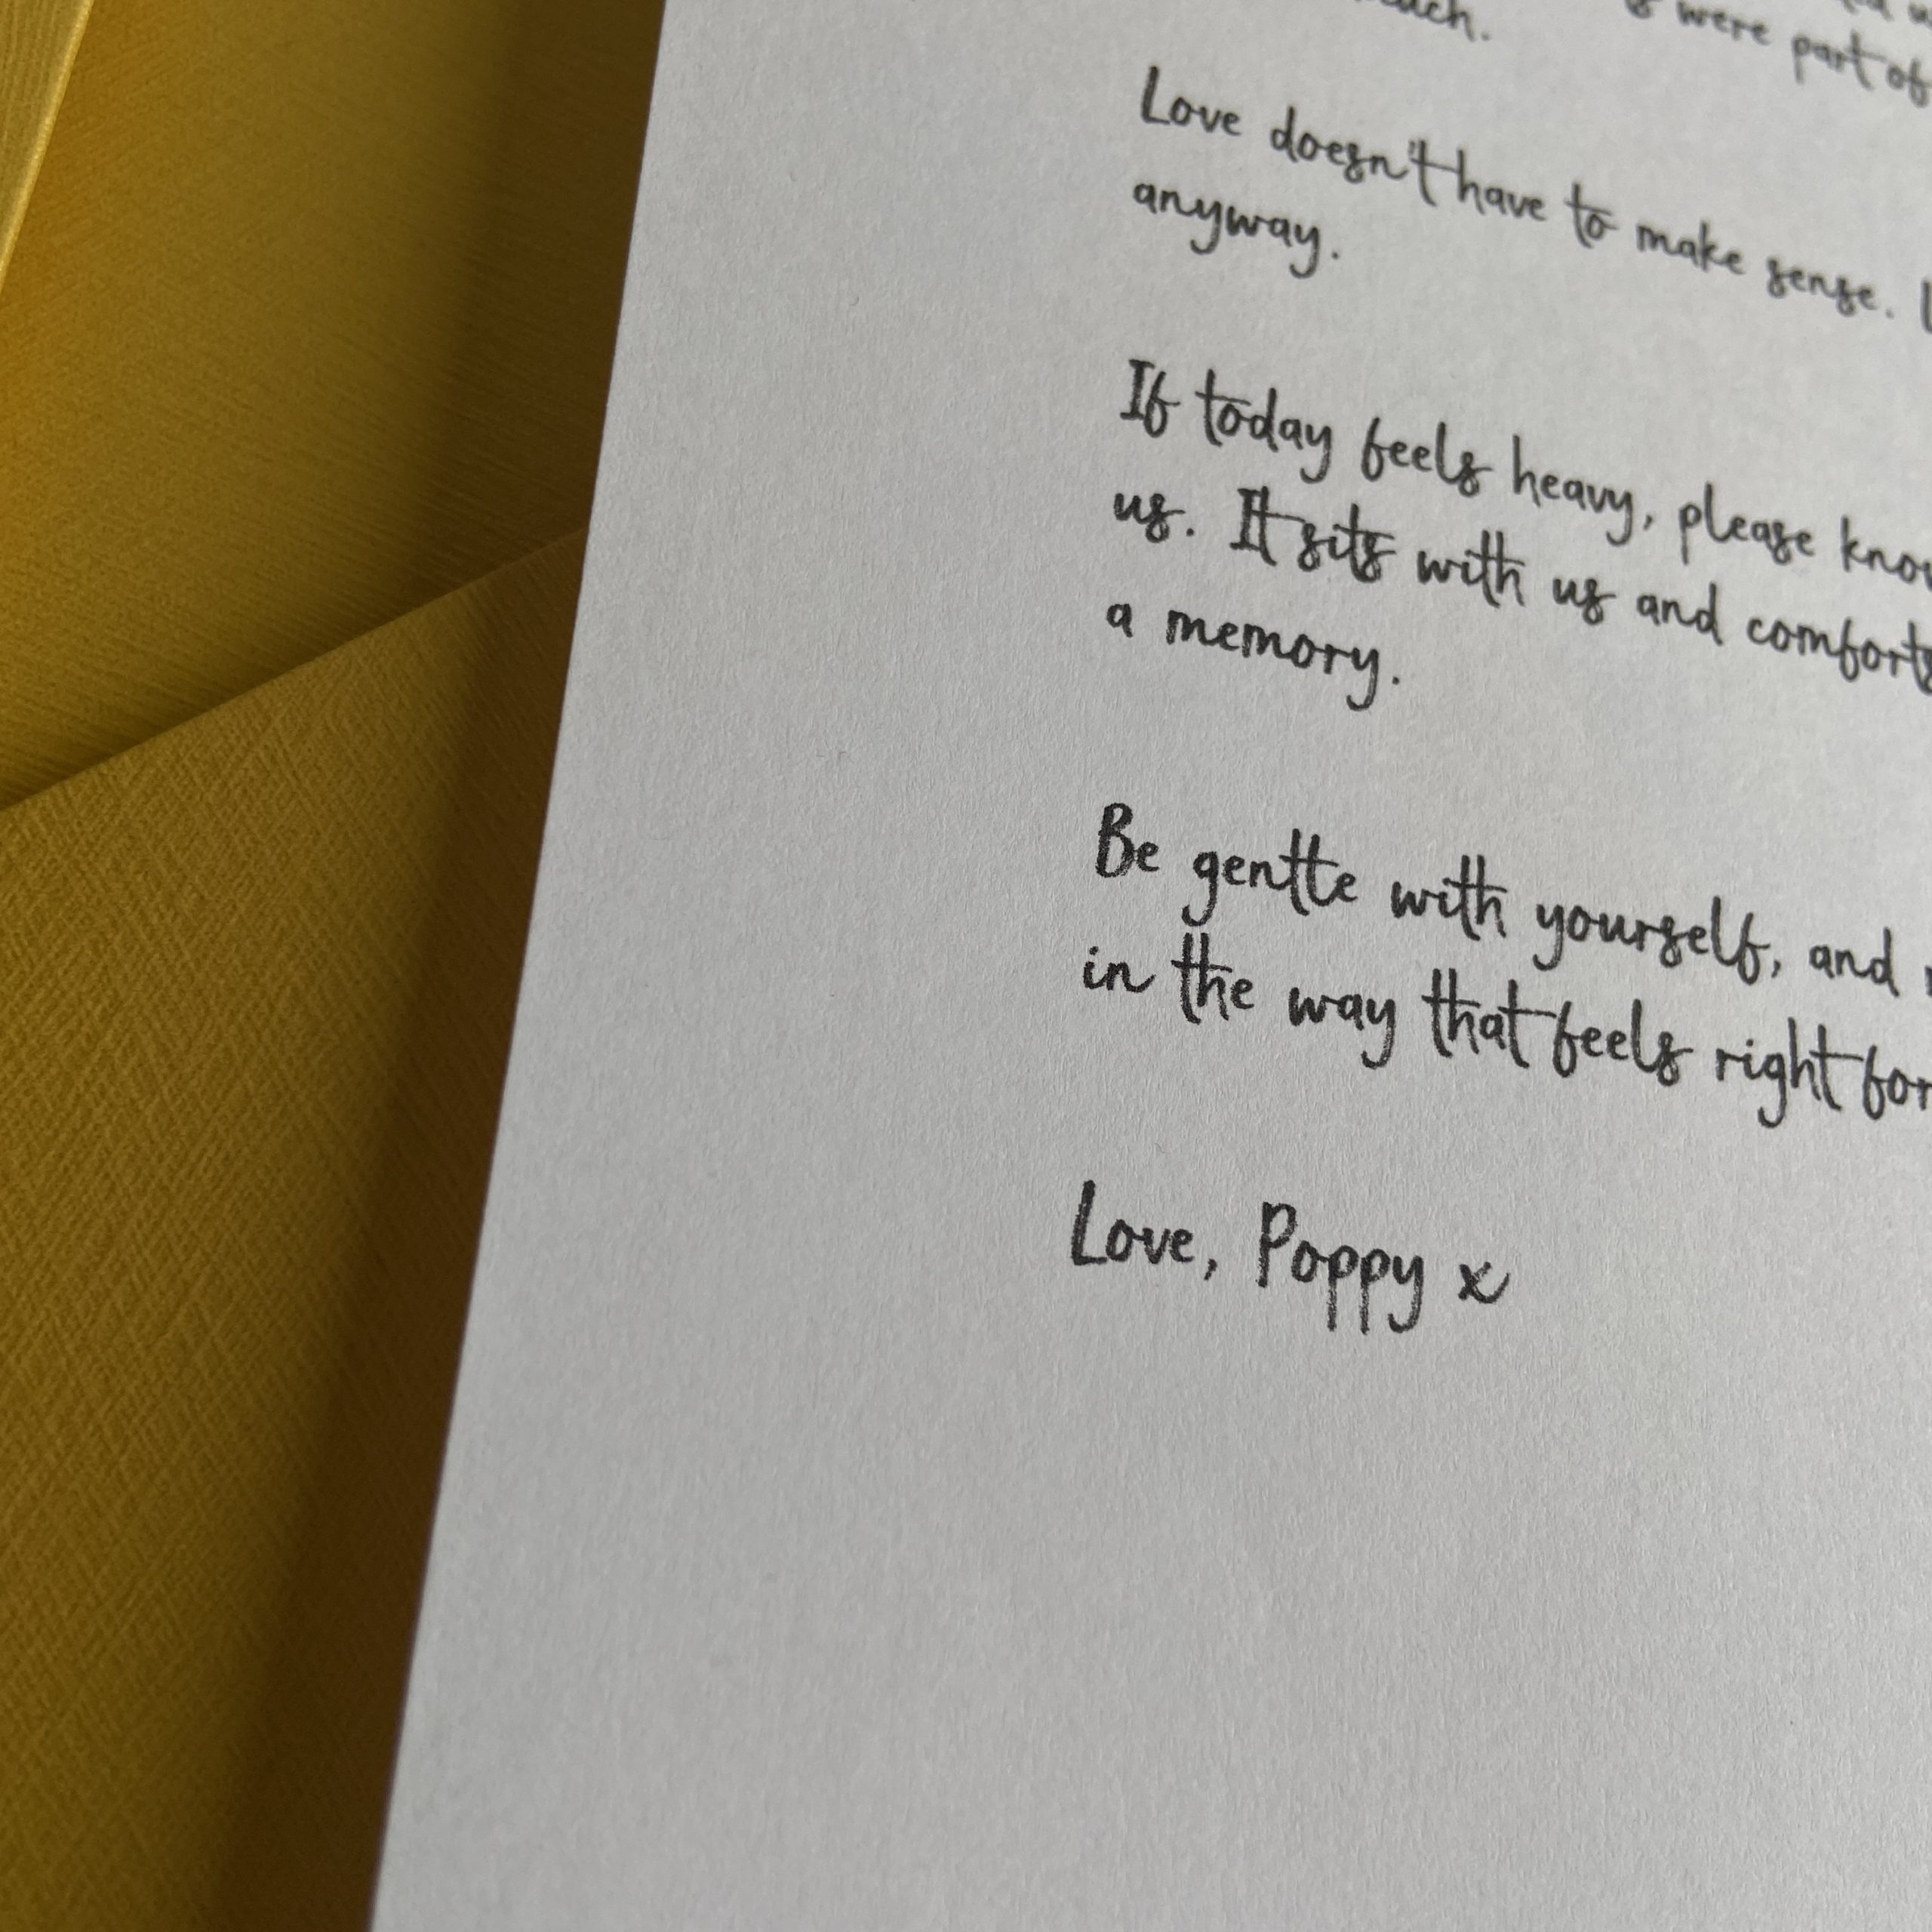 were part of
Love doesn't have to make sense.
anyway.
If today feels heavy, please
us. It sits with us and comforts
a memory.
Be gentle with yourself, and
in the way that feels right for
Love, Poppy x